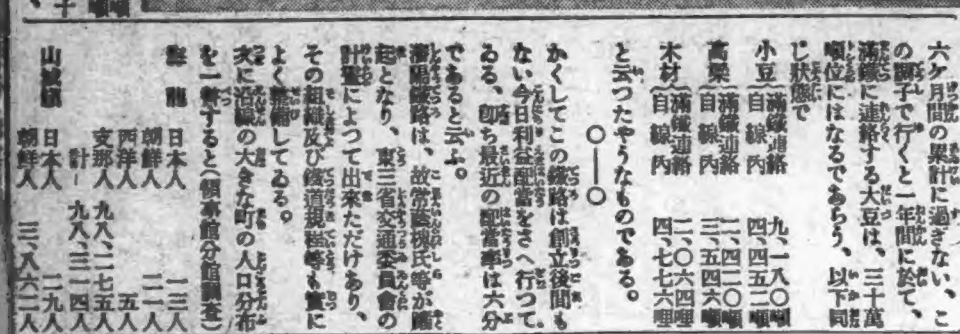 六ケ月間の累計に過ぎない、こ
の調子で行くと一年間に於て、
滿鐵に連絡する大豆は、三十萬
噸位にはなるであらう、以下同
じ狀態で
小豆｛滿鐵連絡 九、一八〇噸
自線內 四、四五二噸
高粱｛滿鐵連絡 二、四二〇噸
自線內 三、五四六噸
木材｛滿鐵連絡 二、〇六四噸
自線內 四、七七六噸
と云つたやうなものである。
〇――〇
かくしてこの鐵路は創立後間も
ない今日利益配當をさへ行つて
ゐる、卽ち最近の配當率は六分
であると云ふ。
瀋陽鐵路は、故常蔭槐氏等が
起となり、東三省交通委員會の
計畫によつて出來ただけあり、
その組織及び鐵道規程等も實に
よく整備してゐる。
次に沿線の大きな町の人口分布
を一瞥すると（領事館分館調査）
日本人 一三人
朝鮮人 二一人
西洋人 五人
支那人 九八、二七五人
計― 九八、三一四人
山城鎭
日本人 二九人
朝鮮人 三、八六二人